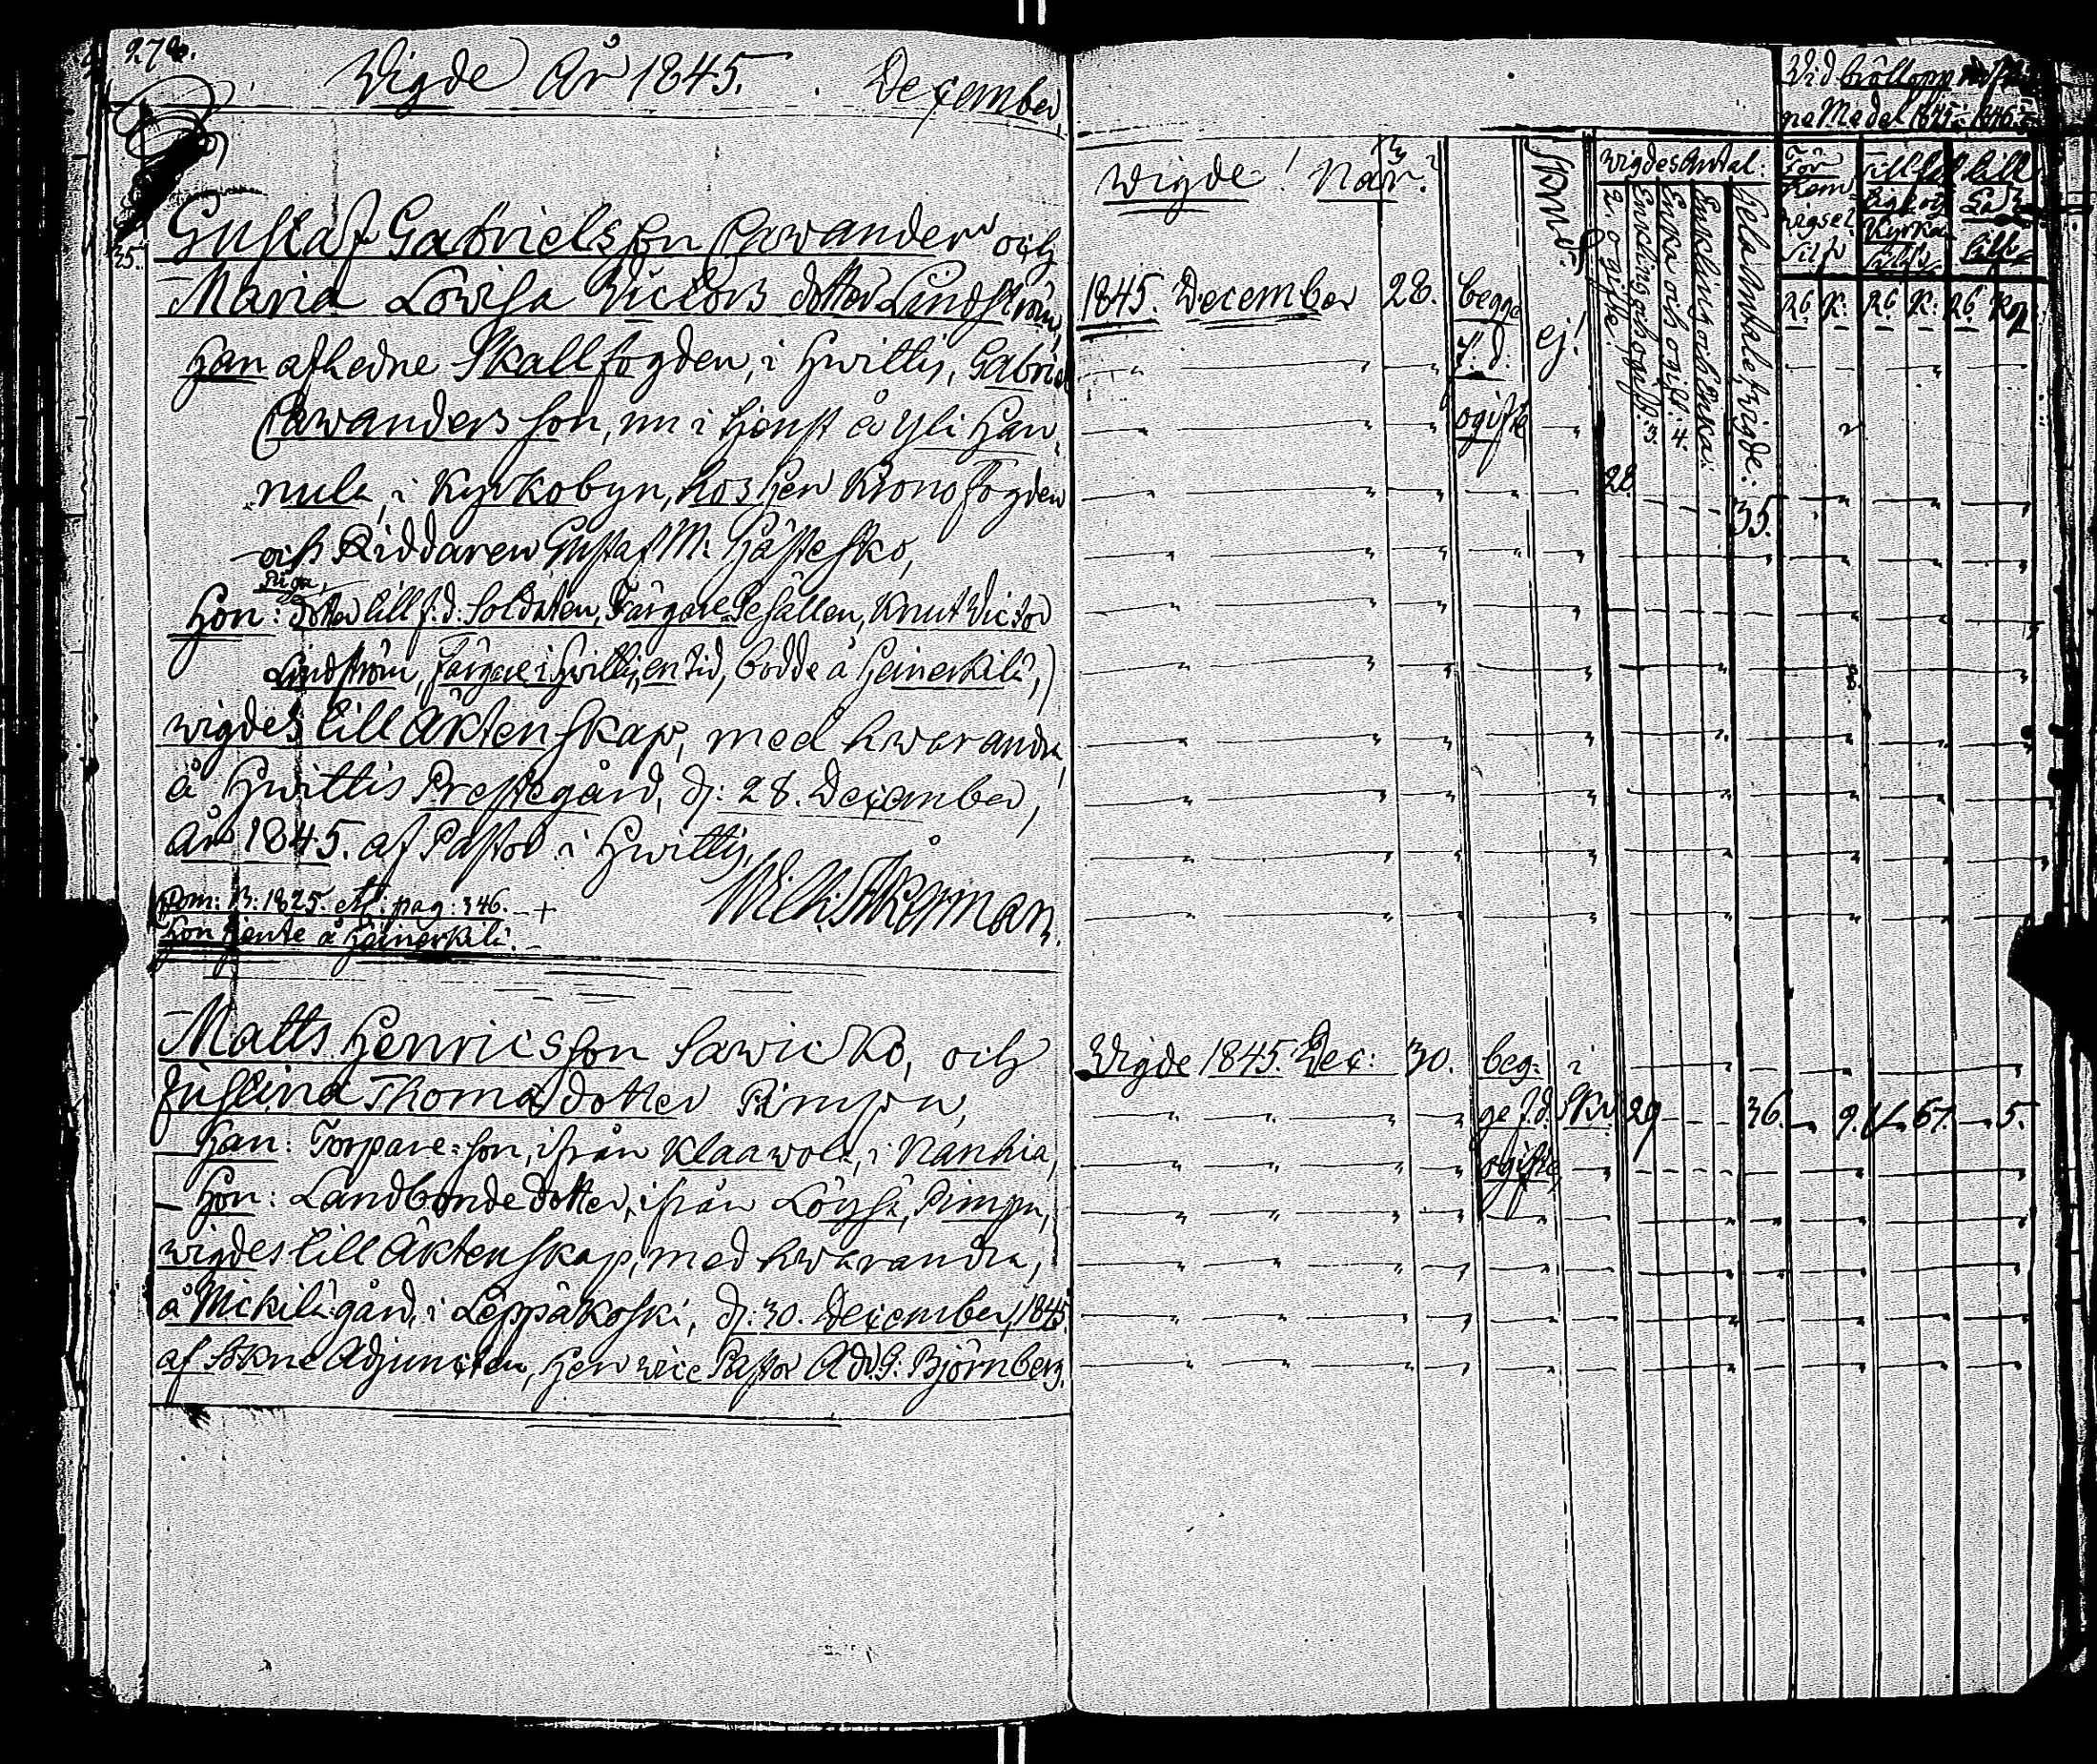 Wigde År 1845. December
35.
Gustaf Gabrielsson Cawander och
Maria Lowisa Victors dotter Lindström,
Han afledne Skallfogden, i Hwittis, Gabriel
Cawanders son, nu i tjenst å Yli Han-
nula, i Kyrkobyn, hos Herr Kronofogden
och Riddaren Gustaf M: Hästesko,
Pigan,
Hon: dotter till f.d. Soldaten, Färgare Gesällen, Knut Victor
Lindström, Färgare i Hwittis, en tid, bodde å Heinerkilä,)
wigdes till Äktenskap, med hwarandra,
å Hwittis Prestegård, d: 28. December,
År 1845. af Pastor i Hwittis,
Wilh: Åkerman.
Com: B: 1825. etc: pag: 346. - +
Hon tjente å Heinerkilä. -
Matts Henricsson Sawicko, och
Justina Thomasdotter Pimpu,
Han: Torpare-son, ifrån Klaawola, i Nanhia,
Hon: Landbondedotter, ifrån Löysä, Pimpu,
wigdes till Äktenskap, med hwarandra,
å Mickilä gård, i Leppäkoski, d: 30. December, 1845.
af Sokne Adjuncten, Herr vice Pastor Ad. G: Björnberg.
Wid bröllopp
ne Medel 1845-1846.
Wigde! När?
Wigdes Antal:
2. ogifte.
Enkling och ogift. 3.
Enka och ogift. 4.
Enkling och Enka.
Hela Antalet wigde.
För
1845. December 28. begge
f. d. ej!
ogifte
28. 35.
Wigde 1845. Dec: 30. beg- i
ge f.d. Skr 29 36. 9. 67. 5.
ogifte